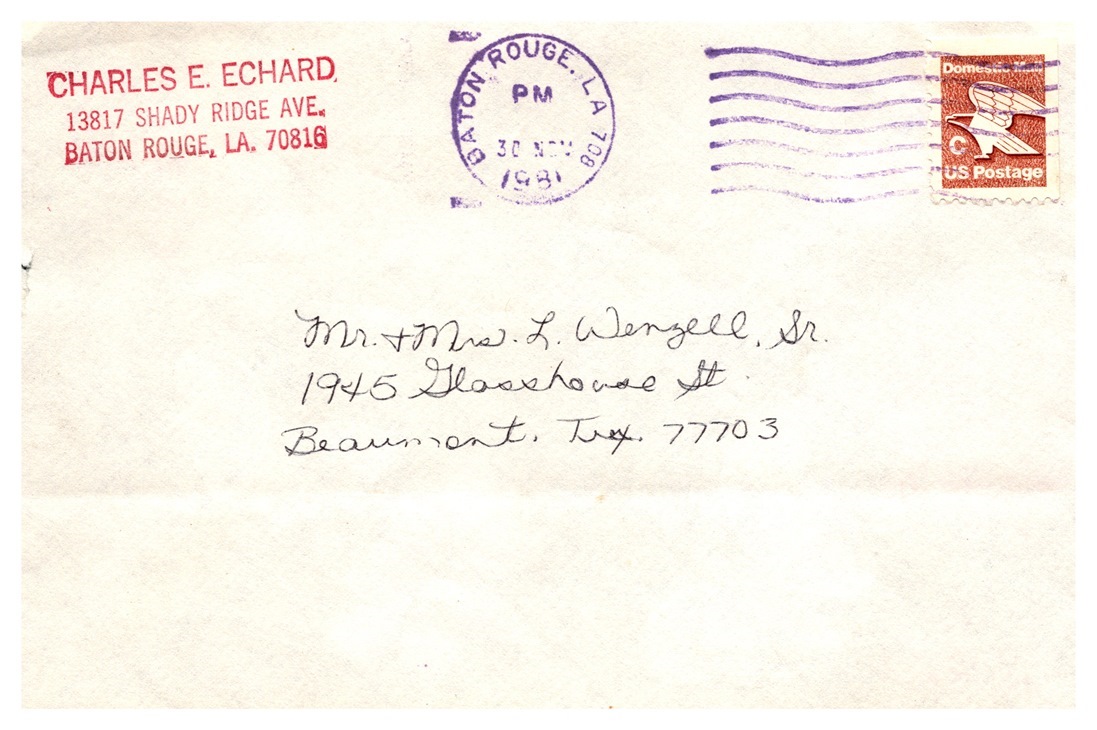 CHARLES E. ECHARD
13817 SHADY RIDGE AVE.
BATON ROUGE, LA. 70816
BATON ROUGE, LA 708
PM
30 NOV
1981
Domestic Mail
C
US Postage
Mr. + Mrs. L. Wenzell, Sr.
1945 Glasshouse St
Beaumont, Tex. 77703